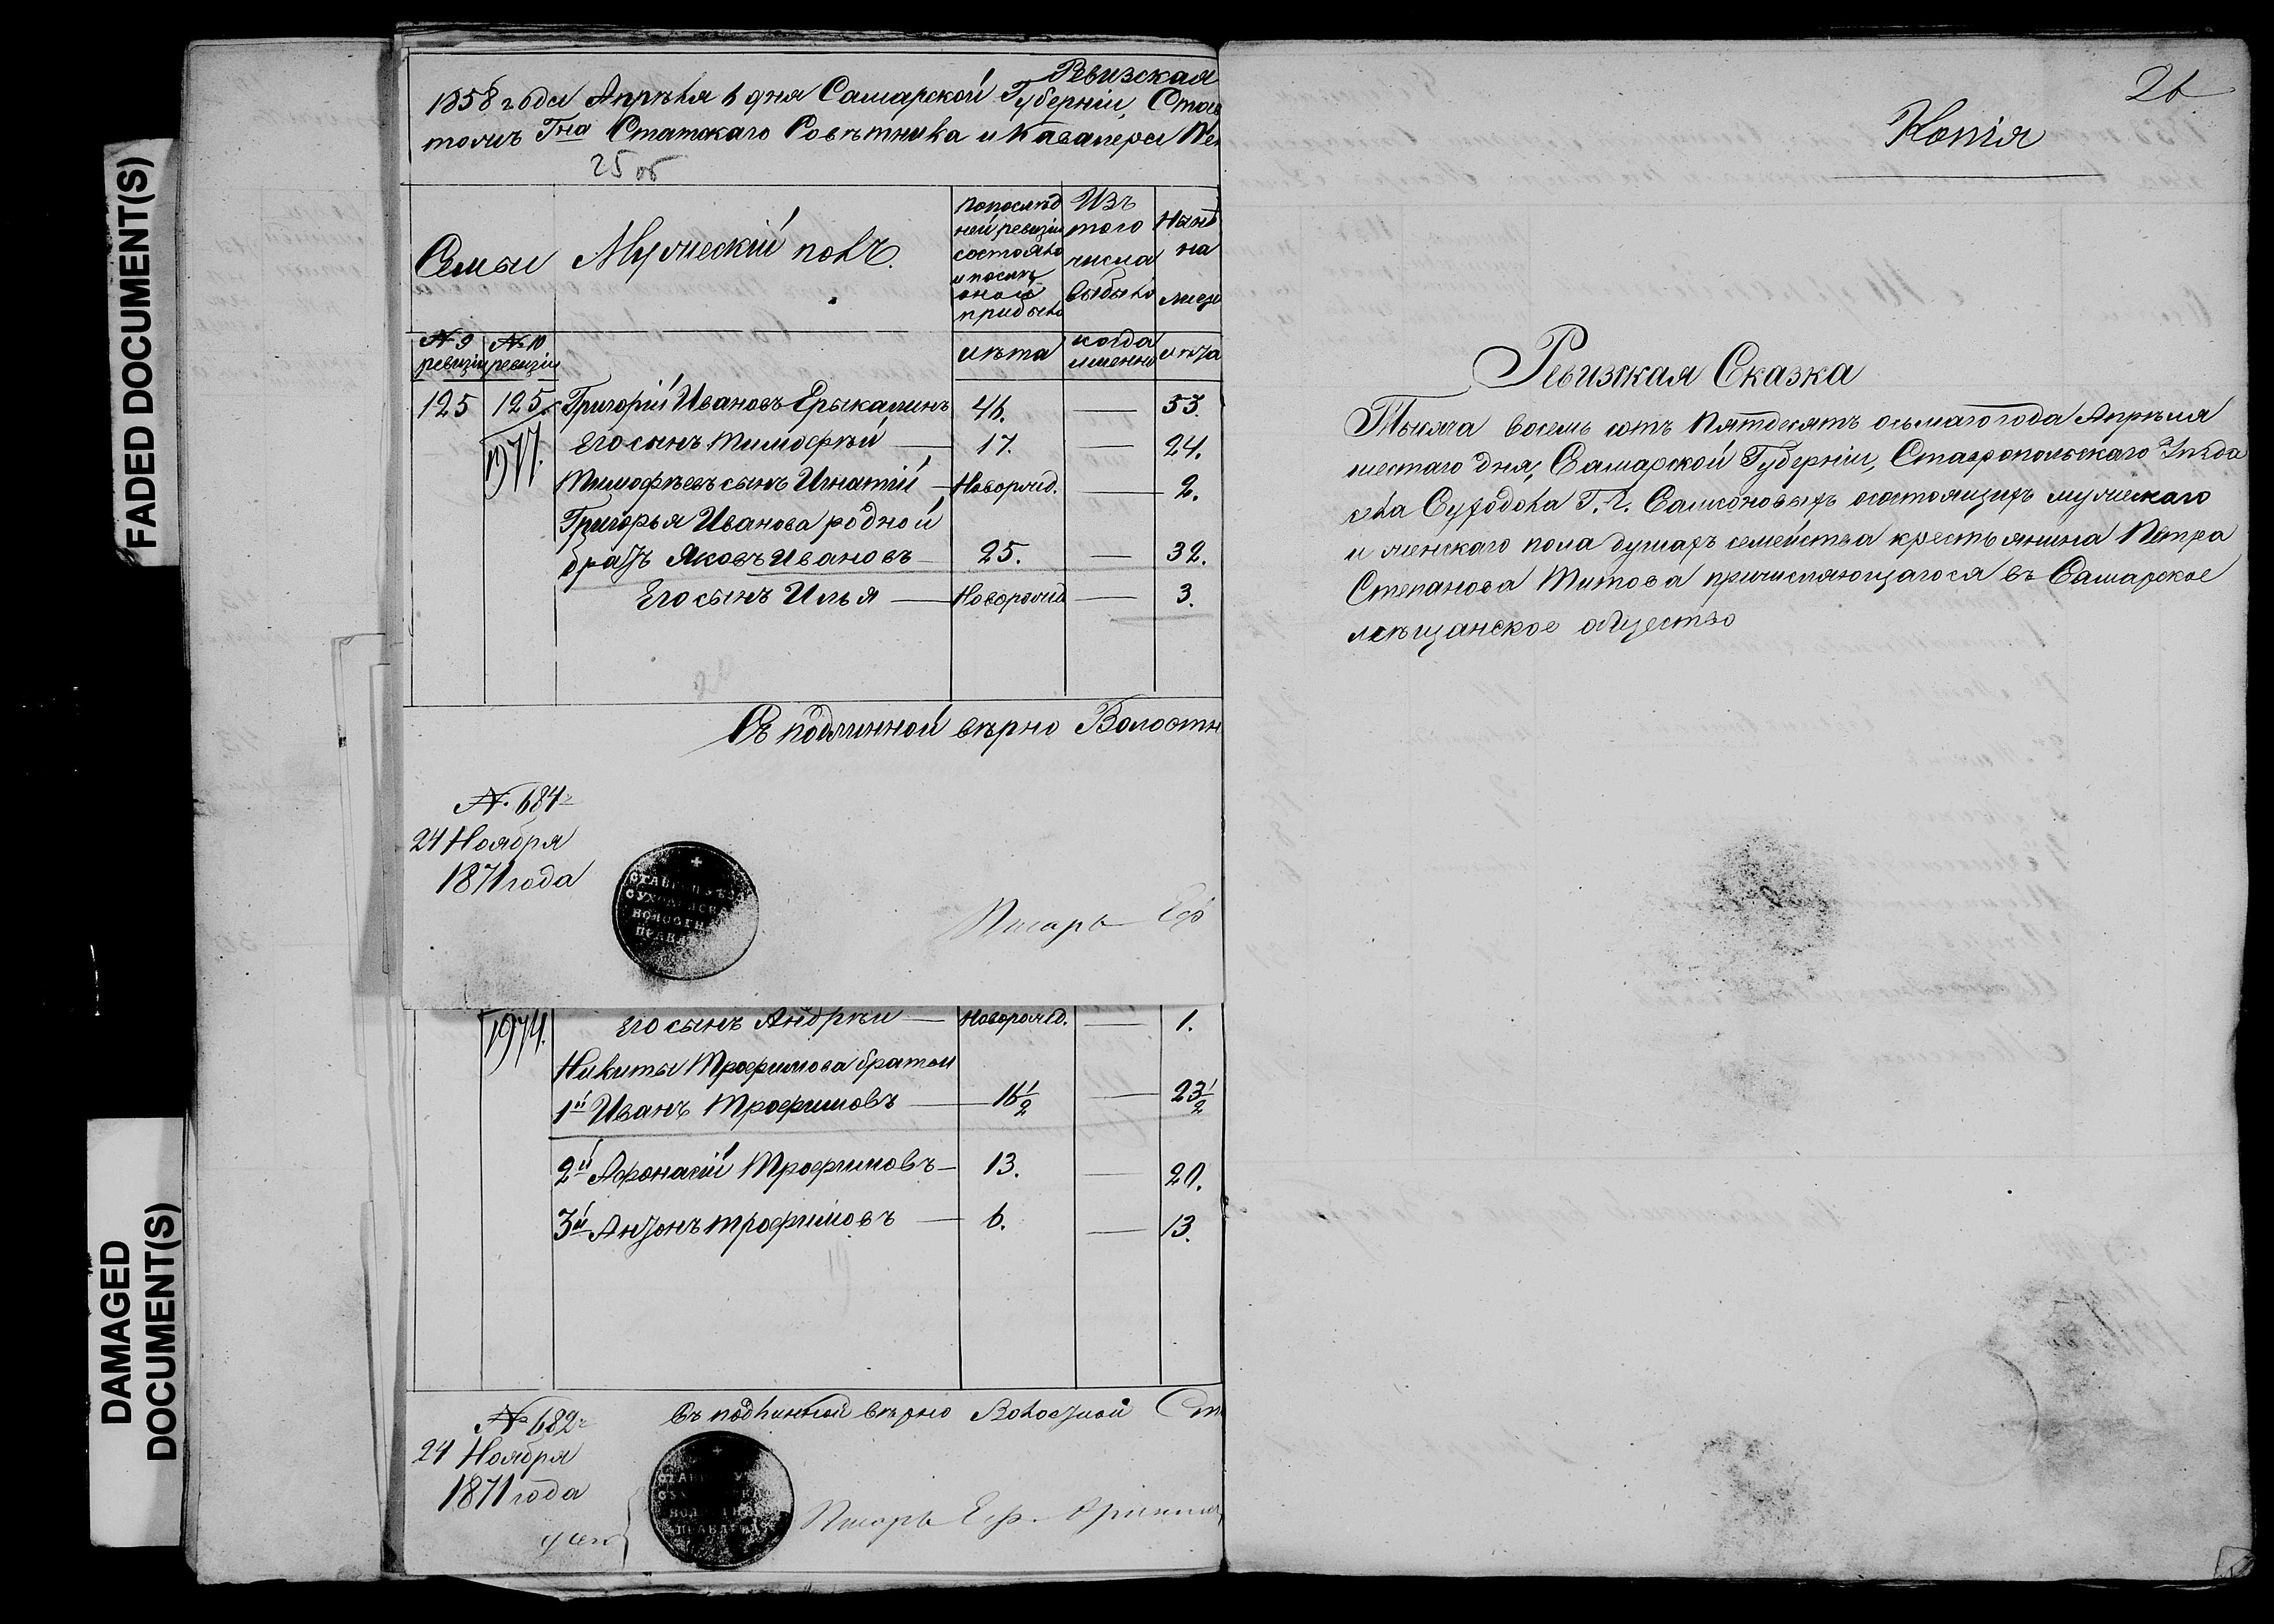 FADED DOCUMENT(S)
DAMAGED
DOCUMENT(S)
Ревизская
1858 года Апрѣля 6 дня Самарской Губерніи, Став
Гна Статскаго Совѣтника и Кавалера
25 об
Семьи
Мужескій полъ.
По послѣд
ней ревизіи
состояло
и послѣ
оной
прибыло
Изъ
того
числа
выбыло
Нынѣ
на
лицо
№ 9
ревизіи
№ 10
ревизіи
лѣта
когда
именно
лѣта
125 125 Григорій Ивановъ Ерыкалинъ 46. — 53.
1977. Его сынъ Тимофѣй — 17. — 24.
Тимофѣевъ сынъ Игнатій — Новорожд. — 2.
Григорья Иванова родной
братъ Яковъ Ивановъ — 25. — 32.
Его сынъ Илья — Новорожд — 3.
Съ подлинной вѣрно Волостн
№. 684
24 Ноября
1871 года
Писарь Еф
1974. Его сынъ Андрѣй — Новорожд. — 1.
Никиты Трофимова братья
1й Иванъ Трофимовъ — 16½ — 23½
2й Афонасій Трофимовъ — 13. — 20.
3й Антонъ Трофимовъ — 6. — 13.
№ 682
Съ подлинной вѣрно Волостной Ст
24 Ноября
1871 года
Писарь Еф.
26
Копія
Ревизская Сказка
Тысяча восемь сотъ Пятдесятъ осьмаго года Апрѣля
шестаго дня, Самарской Губерніи, Ставропольскаго Уѣзда
села Суходола Г. г. Самсоновыхъ о состоящихъ мужескаго
и женскаго пола душахъ семейства крестьянина Петра
Степанова Титова причисляющагося въ Самарское
мѣщанское общество